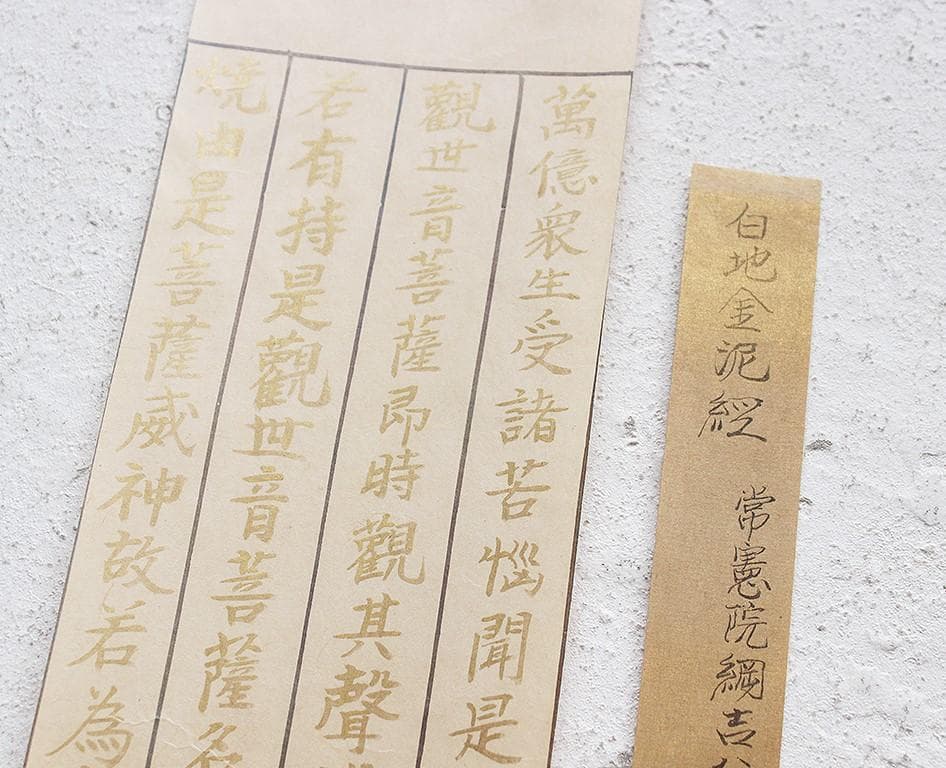 萬億衆生受諸苦惱聞是
觀世音菩薩即時觀其聲
若有持是觀世音菩薩名
燒由是菩薩威神故若為
白地金泥経 常憲院綱吉公